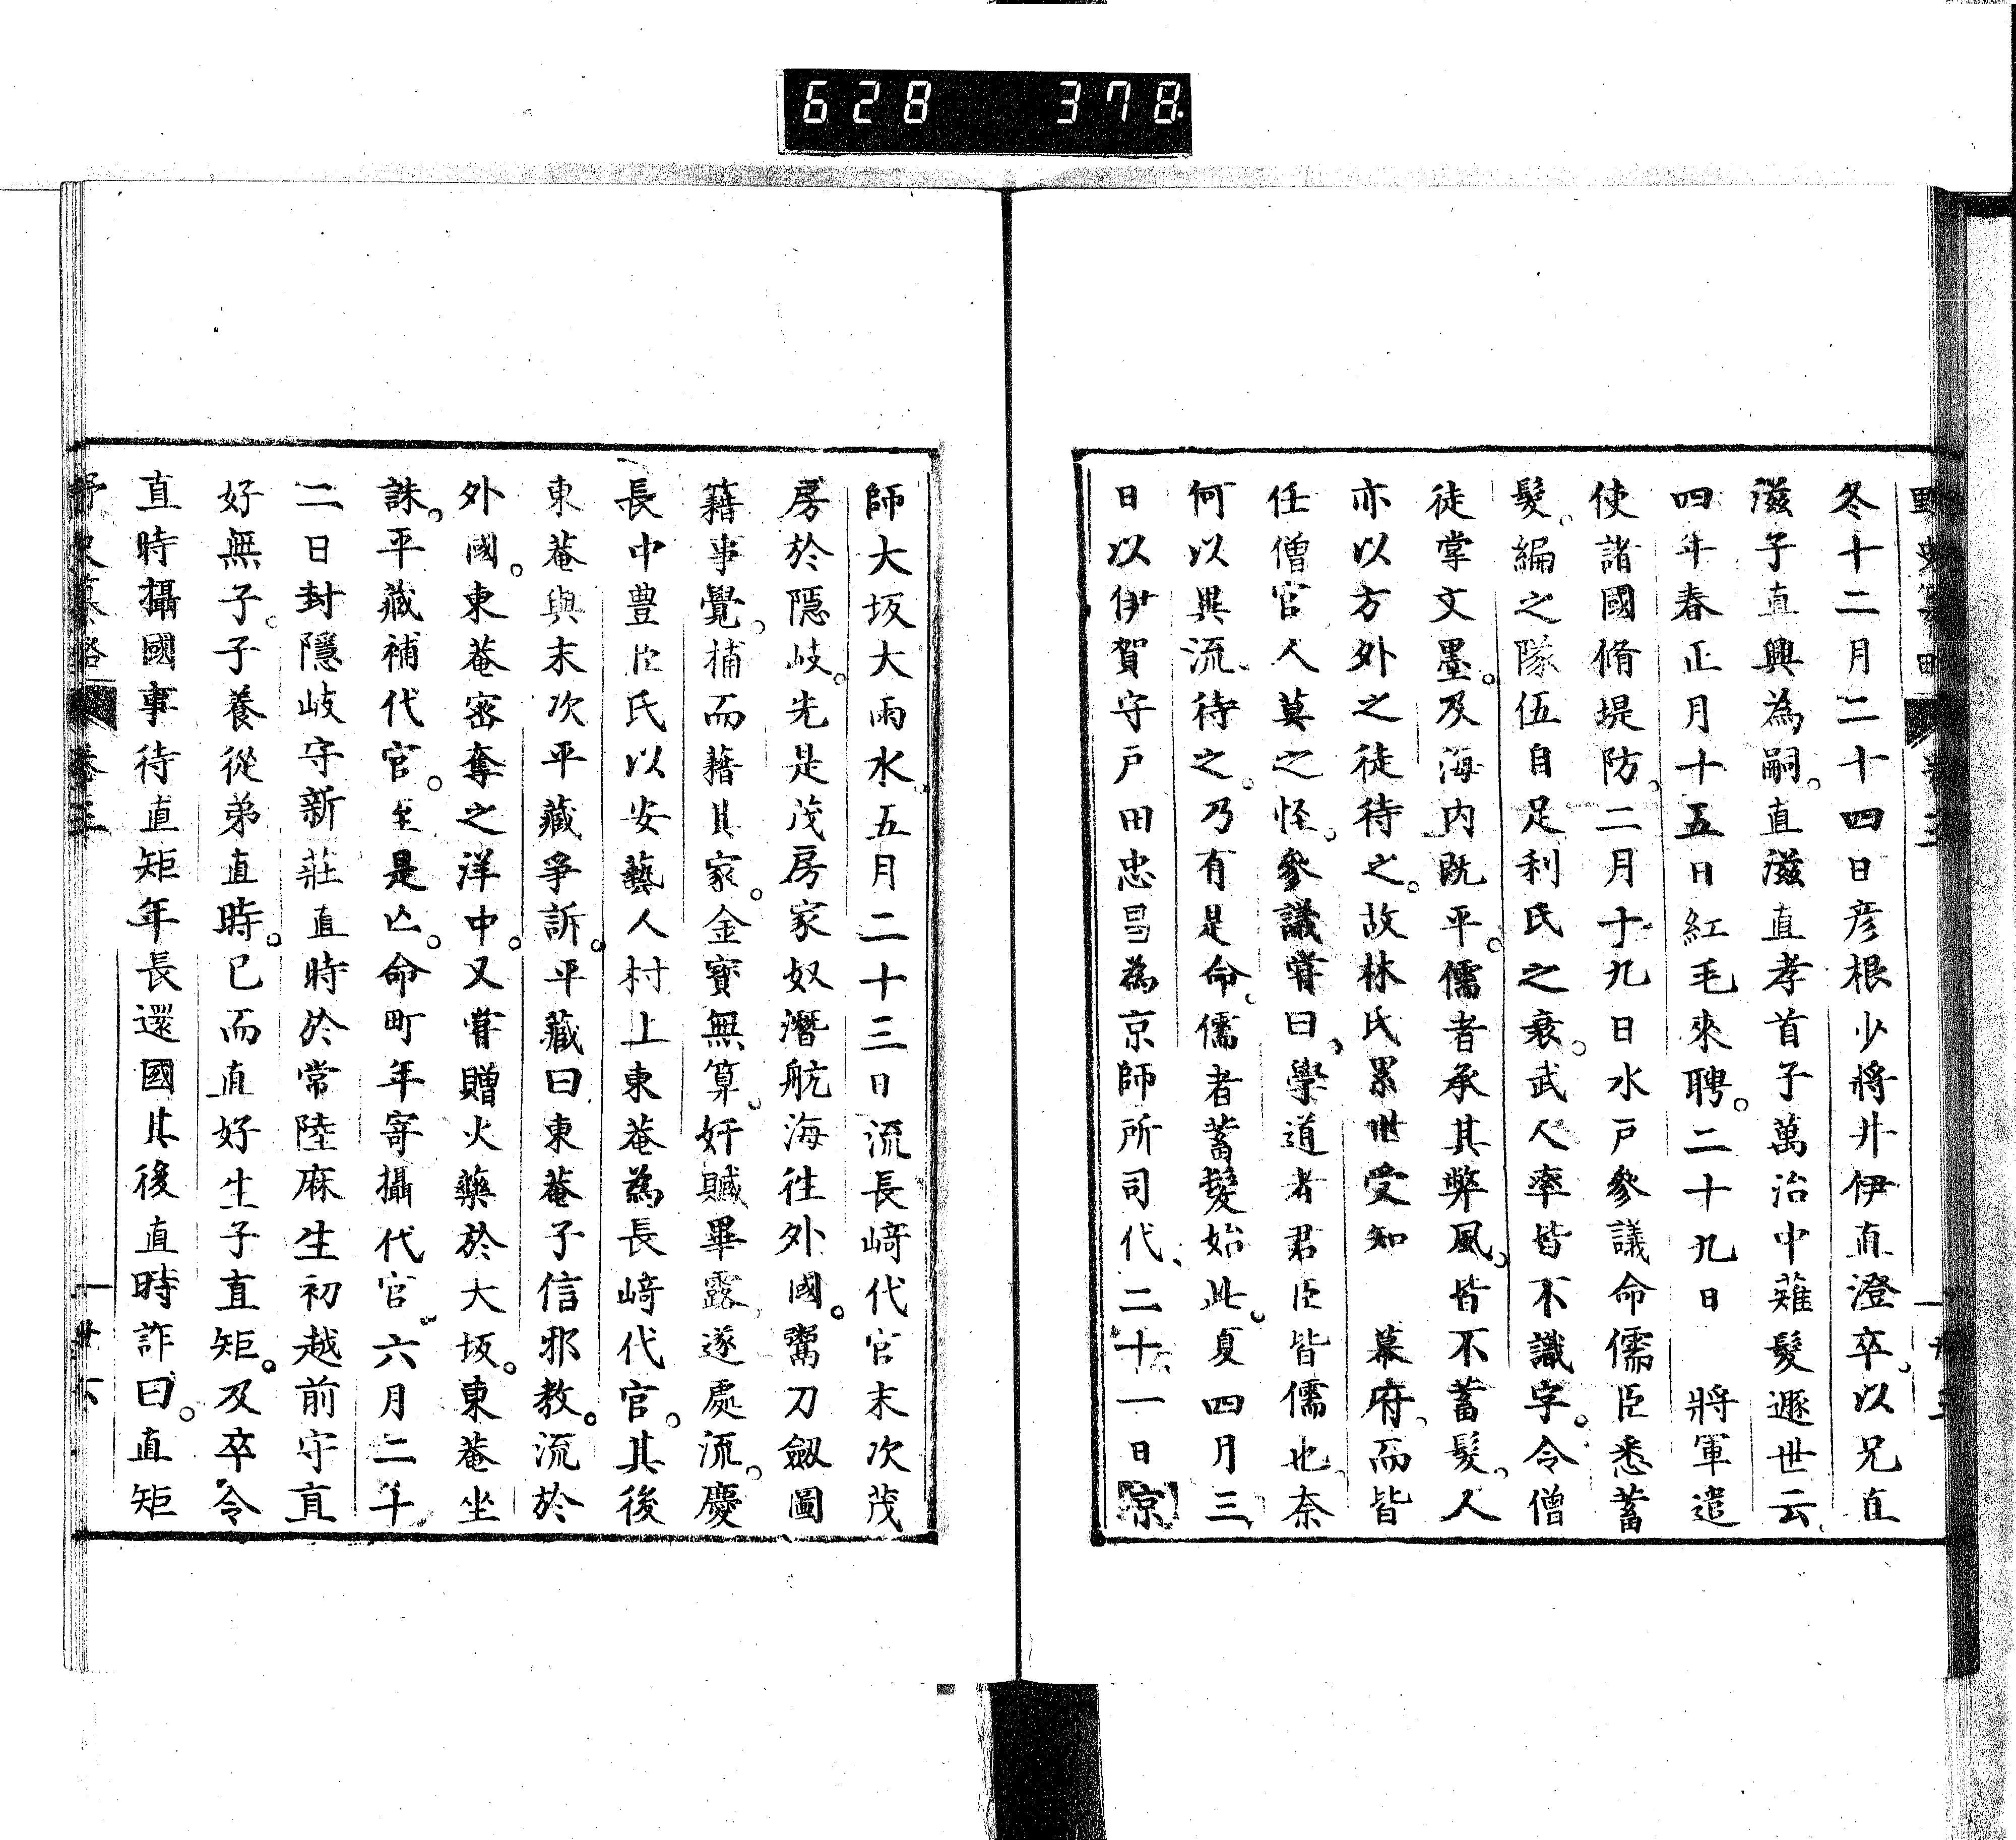 628 378
冬十二月二十四日彦根少將井伊直澄卒以兄直
滋子直興為嗣。直滋直孝首子萬治中薙髮遯世云
四年春正月十五日紅毛來聘。二十九日　將軍遣
使諸國脩堤防、二月十九日水戸參議命儒臣悉蓄
髮。編之隊伍自足利氏之衰。武人率皆不識字。令僧
徒掌文墨。及海内既平。儒者承其弊風、皆不蓄髮、人
亦以方外之徒待之。故林氏累世受知　幕府、而皆
任僧官人莫之怪。參議嘗曰、學道者君臣皆儒也、奈
何以異流待之。乃有是命、儒者蓄髮始此。夏四月三
日以伊賀守戸田忠昌為京師所司代、二十一日京
師大坂大雨水、五月二十三日流長﨑代官末次茂
房於隱岐。先是茂房家奴潛航海往外國。鬻刀劔圖
籍事覺、捕而藉其家。金寳無算、奸贓畢露、遂處流、慶
長中豊臣氏以安藝人村上東菴為長﨑代官。其後
東菴與末次平藏爭訴。平藏曰東菴子信邪教。流於
外國。東菴密奪之洋中。又嘗贈火藥於大坂。東菴坐
誅。平藏補代官。至是亡。命町年寄攝代官。六月二十
二日封隱岐守新莊直時於常陸麻生初越前守直
好無子。子養從弟直時。已而直好生子直矩。及卒令
直時攝國事待直矩年長還國其後直時詐曰。直矩